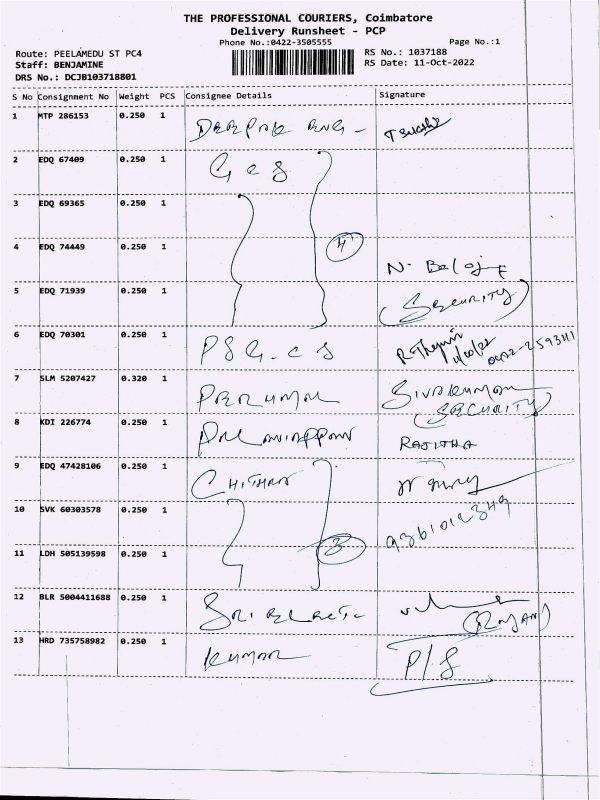 THE PROFESSIONAL COURIERS, Coimbatore
Delivery Runsheet - PCP
Phone No.:0422-3505555
Page No.:1
Route: PEELAMEDU ST PC4
RS No.: 1037188
Staff: BENJAMINE
RS Date: 11-Oct-2022
DRS No.: DCJB103718801
S No Consignment No Weight PCS Consignee Details Signature
1 MTP 286153 0.250 1
2 EDQ 67409 0.250 1 G C S
3 EDQ 69365 0.250 1
4 EDQ 74449 0.250 1 4 N. Balaji
5 EDQ 71939 0.250 1 (SECURITY)
6 EDQ 70301 0.250 1 PSG. CS 0422-2593411
7 SLM 5207427 0.320 1 PERUMAL SIVAKUMAR
(SECURITY)
8 KDI 226774 0.250 1 PALANIAPPAN RAJITHA
9 EDQ 47428106 0.250 1 CHITHRA
10 SVK 60303578 0.250 1 9361012349
11 LDH 505139598 0.250 1 3
12 BLR 5004411688 0.250 1 SRI
13 HRD 735758982 0.250 1 KUMAR P/S